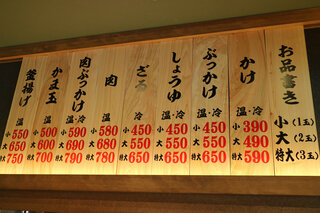 お品書き
小(1玉)
大(2玉)
特大(3玉)
かけ
温・冷
小 390
大 490
特大 590
ぶっかけ
温・冷
小 450
大 550
特大 650
しょうゆ
温・冷
小 450
大 550
特大 650
ざる
冷
小 450
大 550
特大 650
肉
温
小 580
大 680
特大 780
肉ぶっかけ
温・冷
小 590
大 690
特大 790
かま玉
温
小 500
大 600
特大 700
釜揚げ
温
小 550
大 650
特大 750